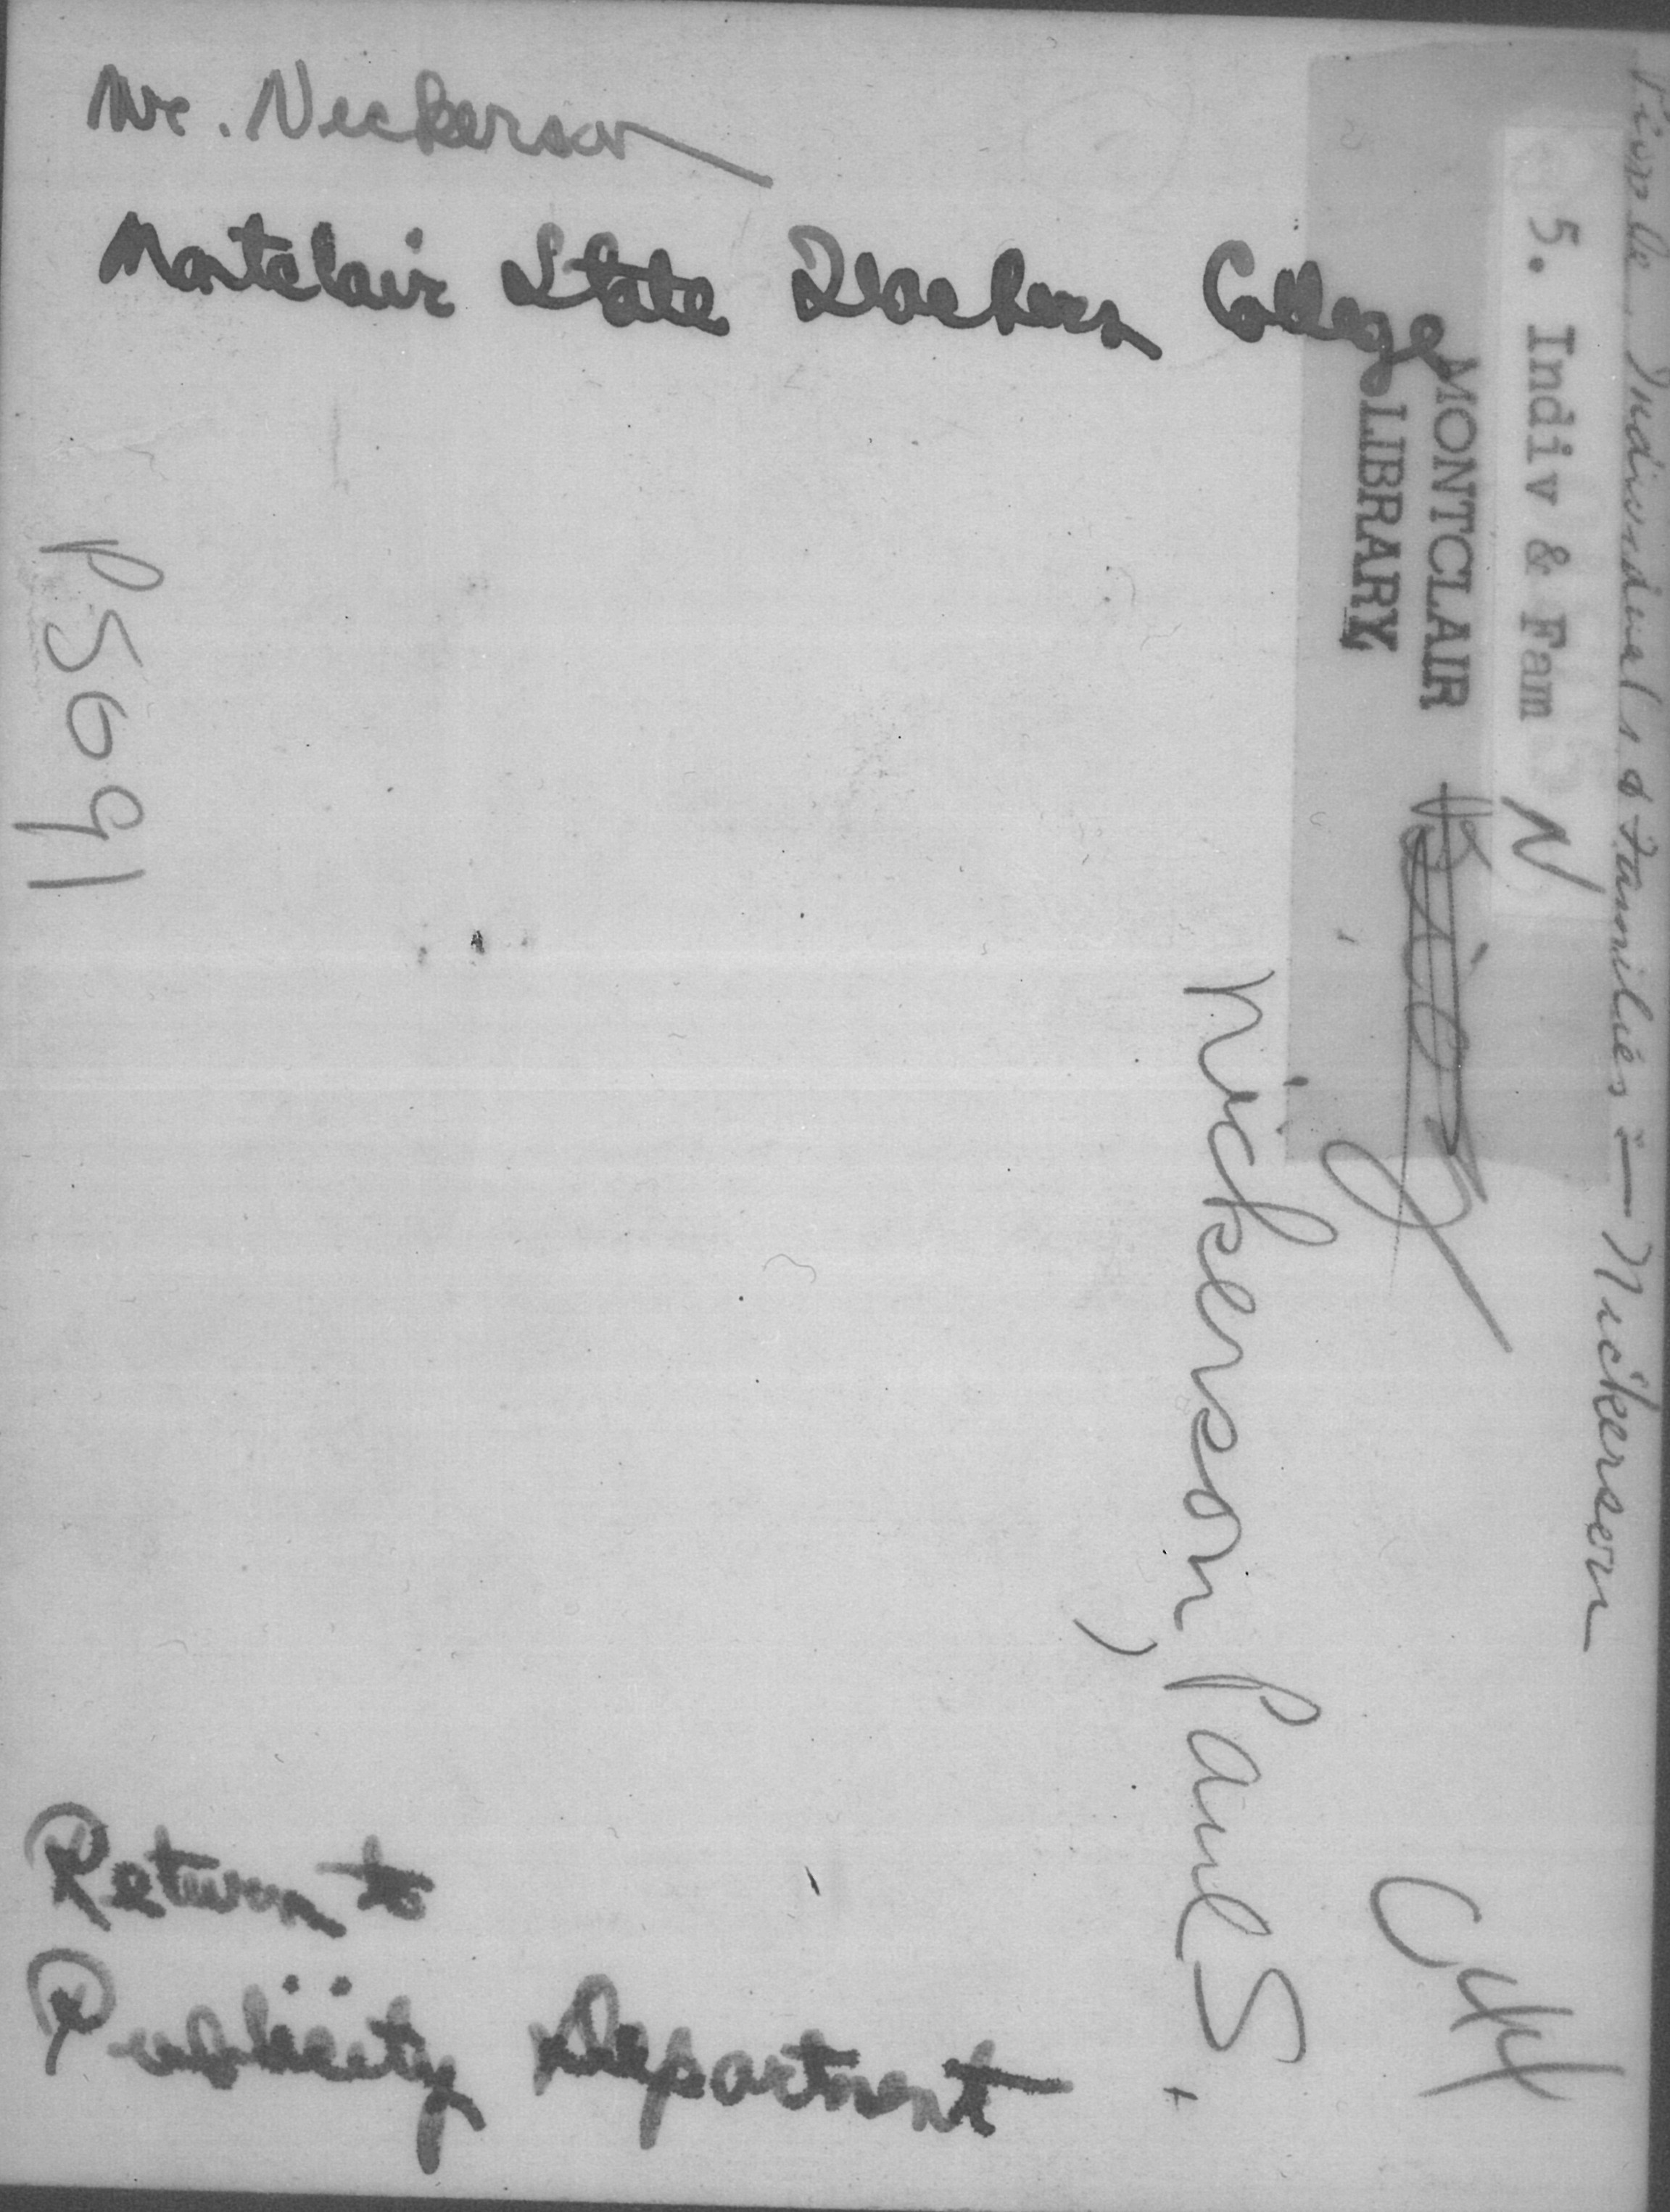 Mr. Nickerson
Montclair State Teachers College
People. Individuals & Families :— Nickerson
5. Indiv & Fam N
MONTCLAIR
LIBRARY
Nickerson, Paul S.
P5691
Return to
Publicity Department